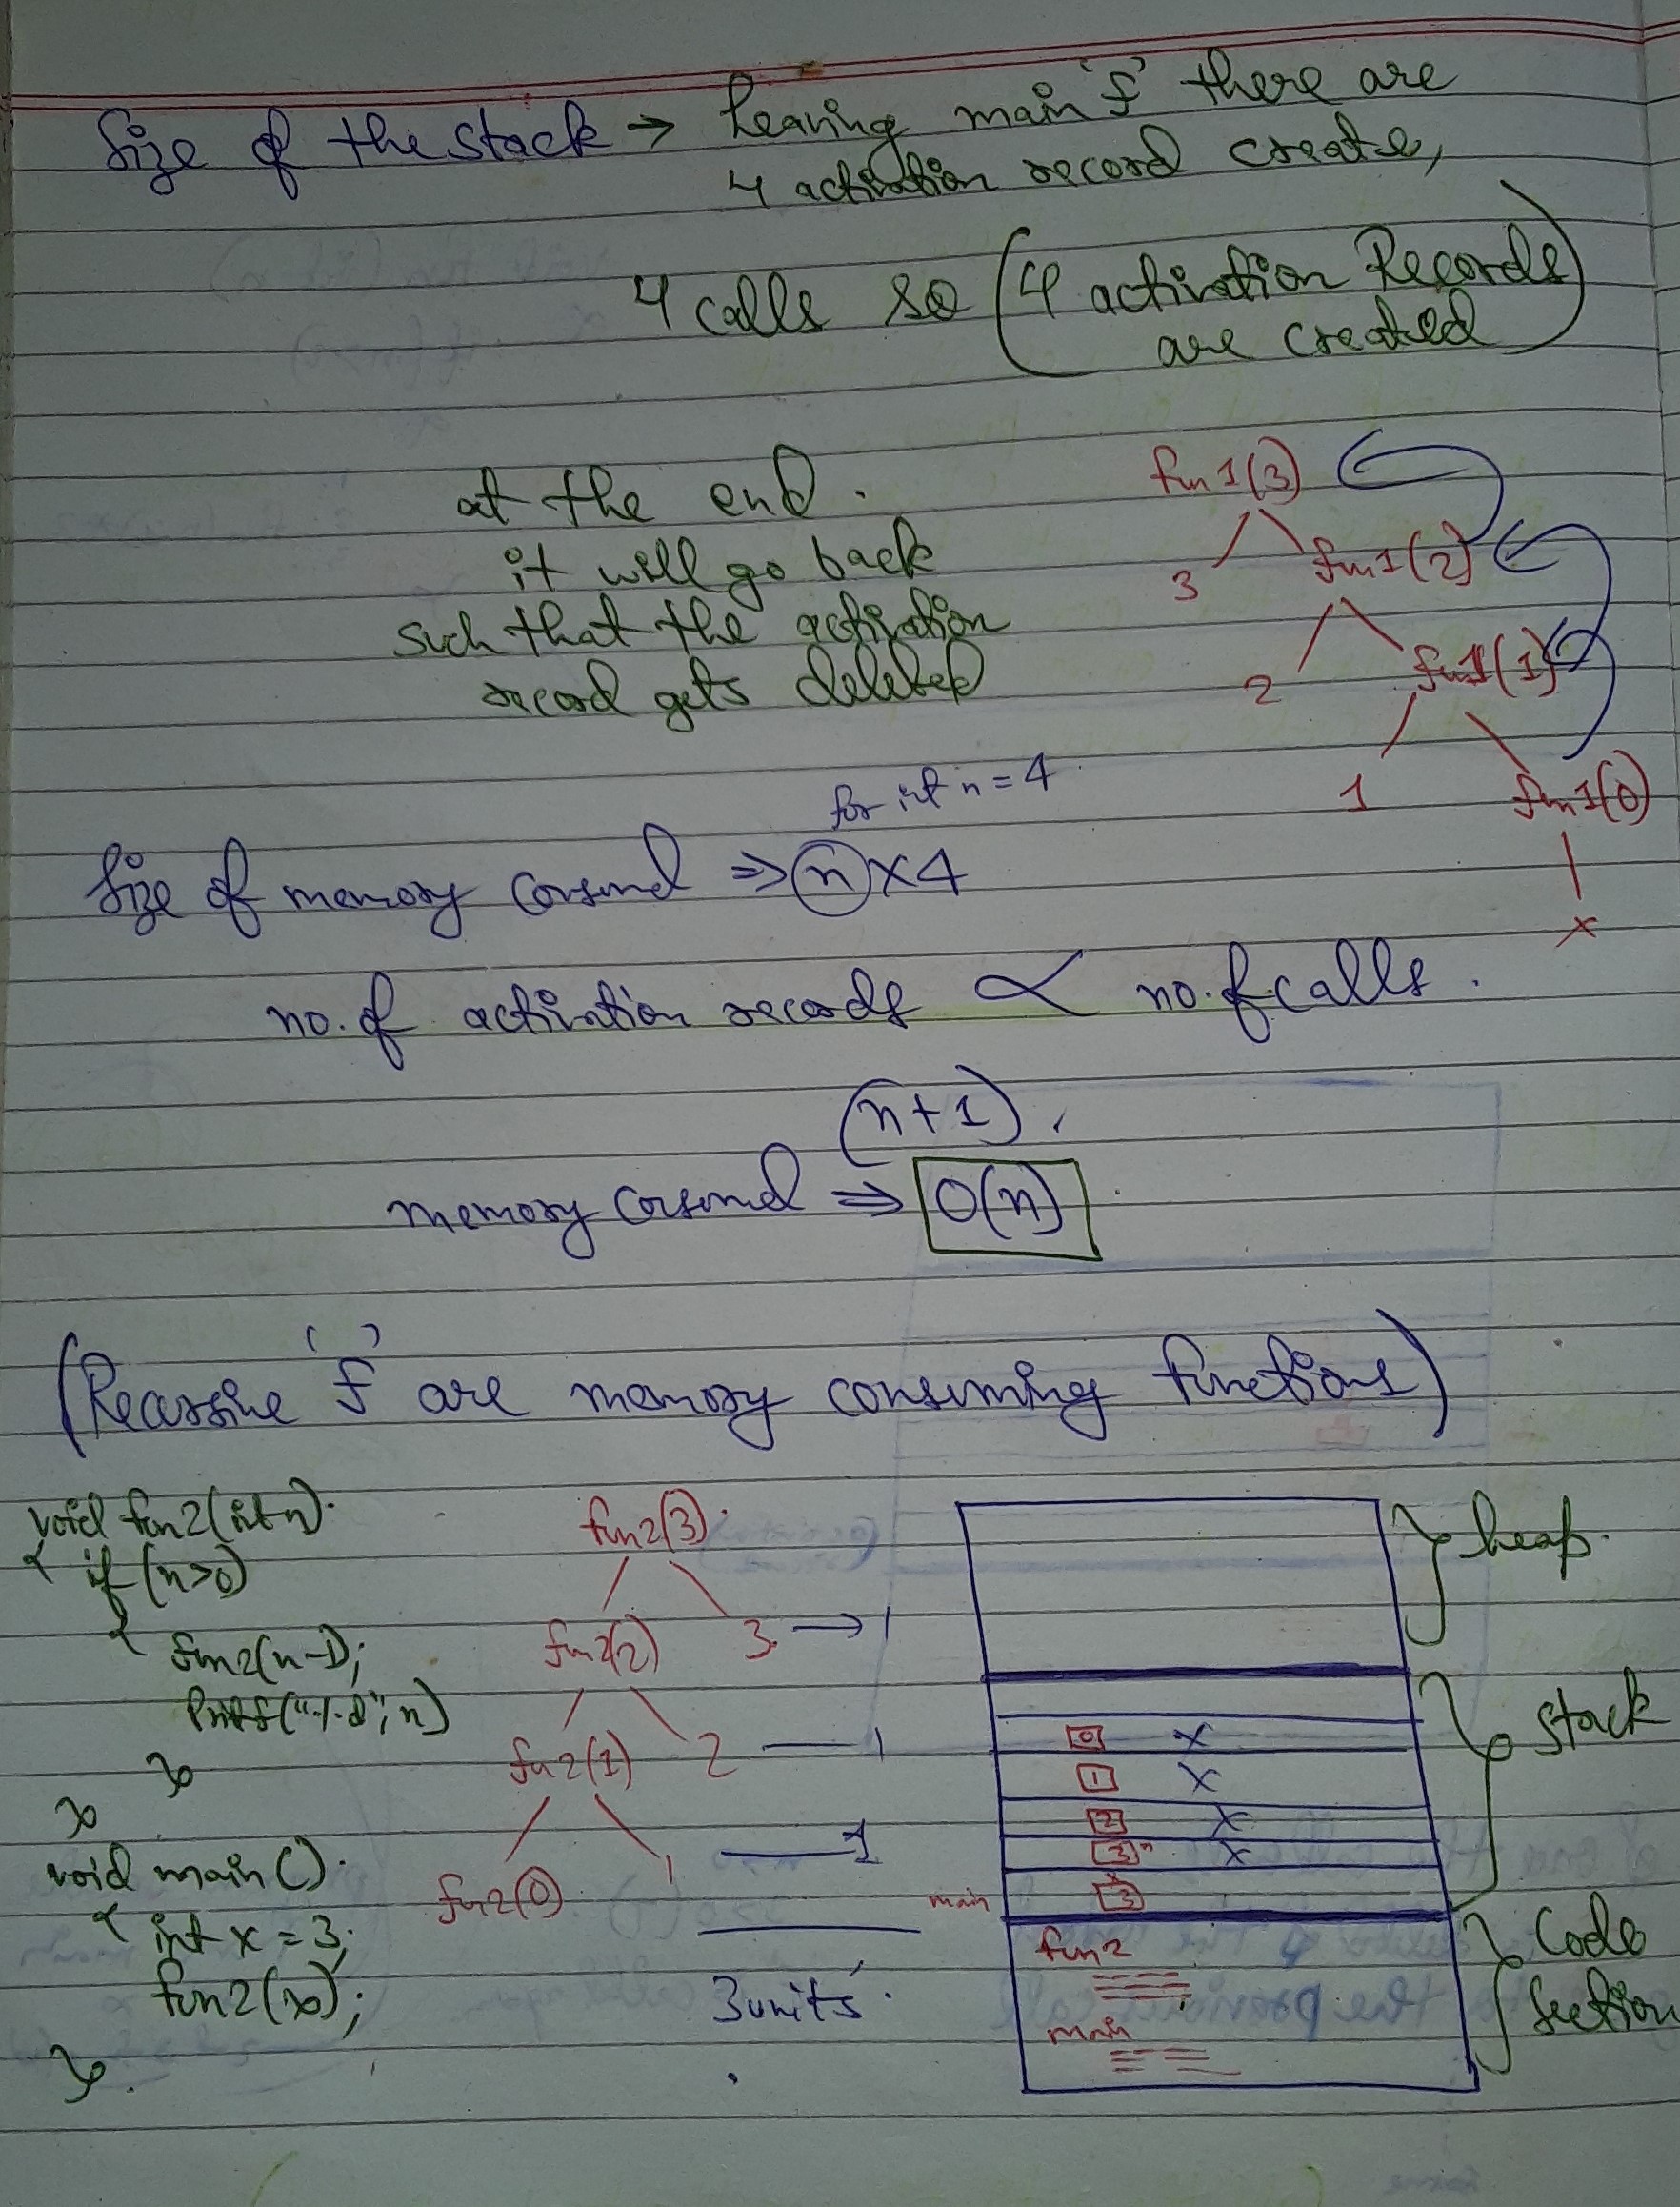 Size of the stack → Leaving main 'f' there are
4 activation record create,
4 calls so (4 activation Records
are created)
at the end.
it will go back
such that the activation
record gets deleted
fun1(3)
3 fun1(2)
2 fun1(1)
1 fun1(0)
x
for int n = 4
Size of memory consumed ⇒ n × 4
no. of activation records ∝ no. of calls.
(n+1).
memory consumed ⇒ O(n)
(Recursive 'f' are memory consuming functions)
void fun2(int n)
{ if (n>0)
{ fun2(n-1);
printf("%d", n)
}
}
void main()
{ int x = 3;
fun2(x);
}
fun2(3)
fun2(2) 3 → 1
fun2(1) 2 — 1
fun2(0) 1 — 1
3 units
heap
0 x
1 x
2 x
3 n x
x
main 3
stack
fun2
main
Code
Section